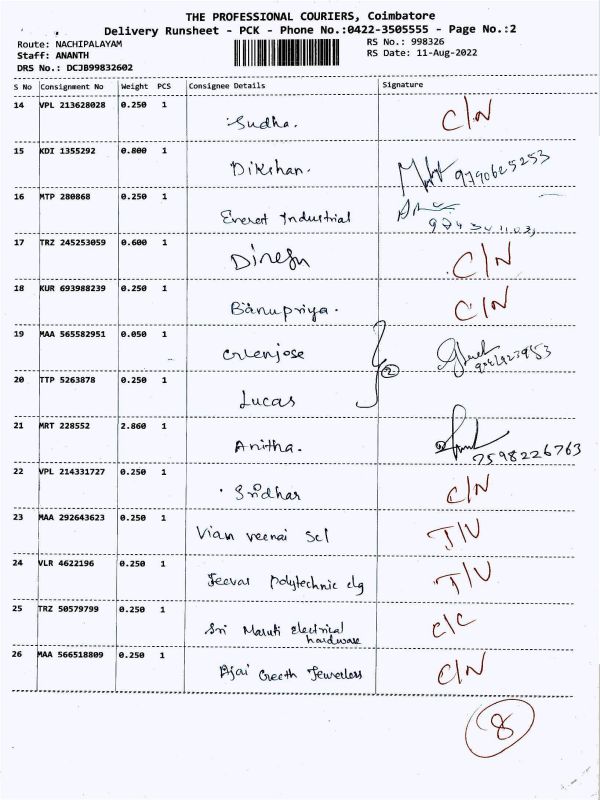 THE PROFESSIONAL COURIERS, Coimbatore
Delivery Runsheet - PCK - Phone No.:0422-3505555 - Page No.:2
Route: NACHIPALAYAM RS No.: 998326
Staff: ANANTH RS Date: 11-Aug-2022
DRS No.: DCJB99832602
S No Consignment No Weight PCS Consignee Details Signature
14 VPL 213628028 0.250 1 Sudha. C/N
15 KDI 1355292 0.800 1 Dikshan. 9790625253
16 MTP 280868 0.250 1 Everest Industrial
17 TRZ 245253059 0.600 1 Dinesh C/N
18 KUR 693988239 0.250 1 Banupriya. C/N
19 MAA 565582951 0.050 1 Crlenjose
20 TTP 5263878 0.250 1 Lucas 2
21 MRT 228552 2.860 1 Anitha. 7598226763
22 VPL 214331727 0.250 1 Sridhar C/N
23 MAA 292643623 0.250 1 Vian veenai Scl T/V
24 VLR 4622196 0.250 1 Jeevas Polytechnic clg T/V
25 TRZ 50579799 0.250 1 Sri Maruti Electrical
hardware C/C
26 MAA 566518809 0.250 1 Ajai Geeth Jewerless C/N
8